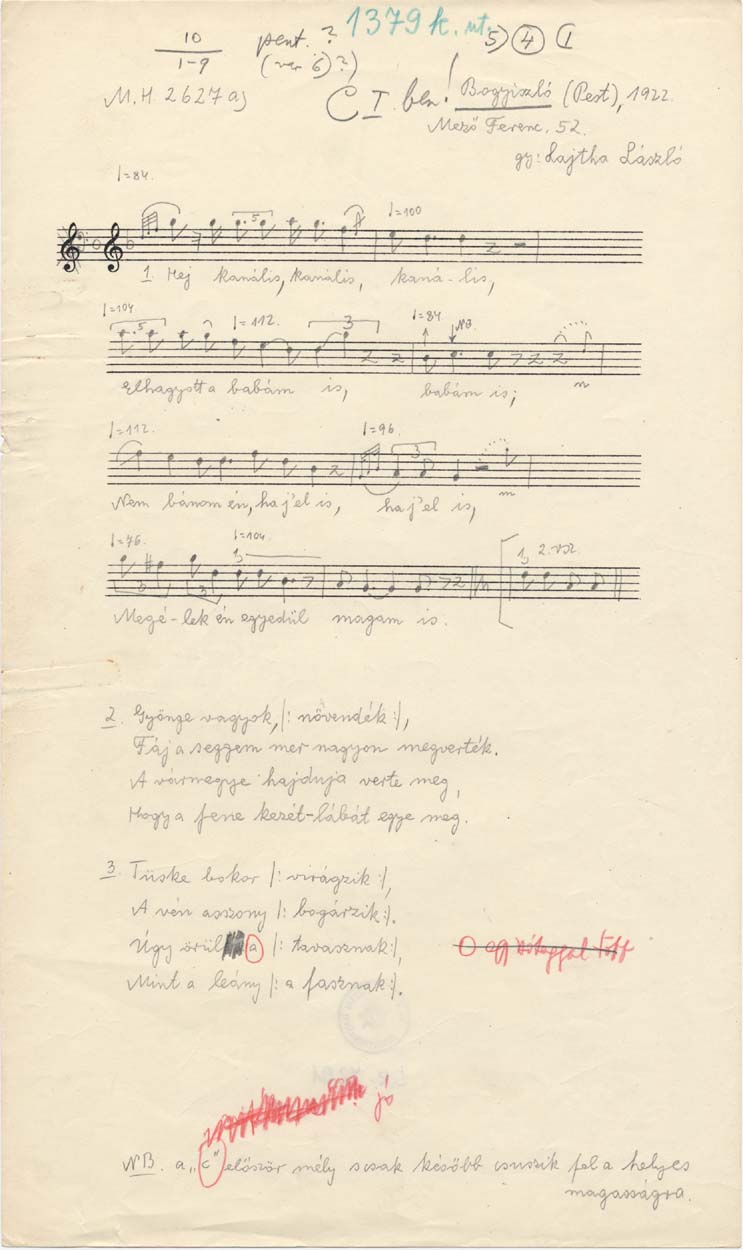 1379 k. nt.
10 pent. ? 5) 4 (1
1-9 (var 6)?)
M.H. 2627 a) C I. ben! Bogyiszló (Pest), 1922.
Mező Ferenc, 52.
gy: Lajtha László
=84.
=100
1. Hej kanális, kanális, kaná-lis,
=104. 5 =112. 3 =84 NB.
Elhagyott a babám is, babám is;
=112. =96. 3
Nem bánom én, ha j'el is, ha j'el is,
=76. =104. 1, 1, 2. vsz.
3 3
Megé-lek én egyedül magam is.
2. Gyönge vagyok, |: növendék :|,
Fáj a seggem mer nagyon megverték.
A vármegye hajduja verte meg,
Hogy a fene kezét-lábát egye meg.
3. Tüske bokor |: virágzik :|,
A vén asszony |: bogárzik :|.
Úgy örül a |: tavasznak :|, egy szótaggal több
Mint a leány |: a fasznak :|.
jó
NB. a „c" először mély s csak később csuszik fel a helyes
magasságra.